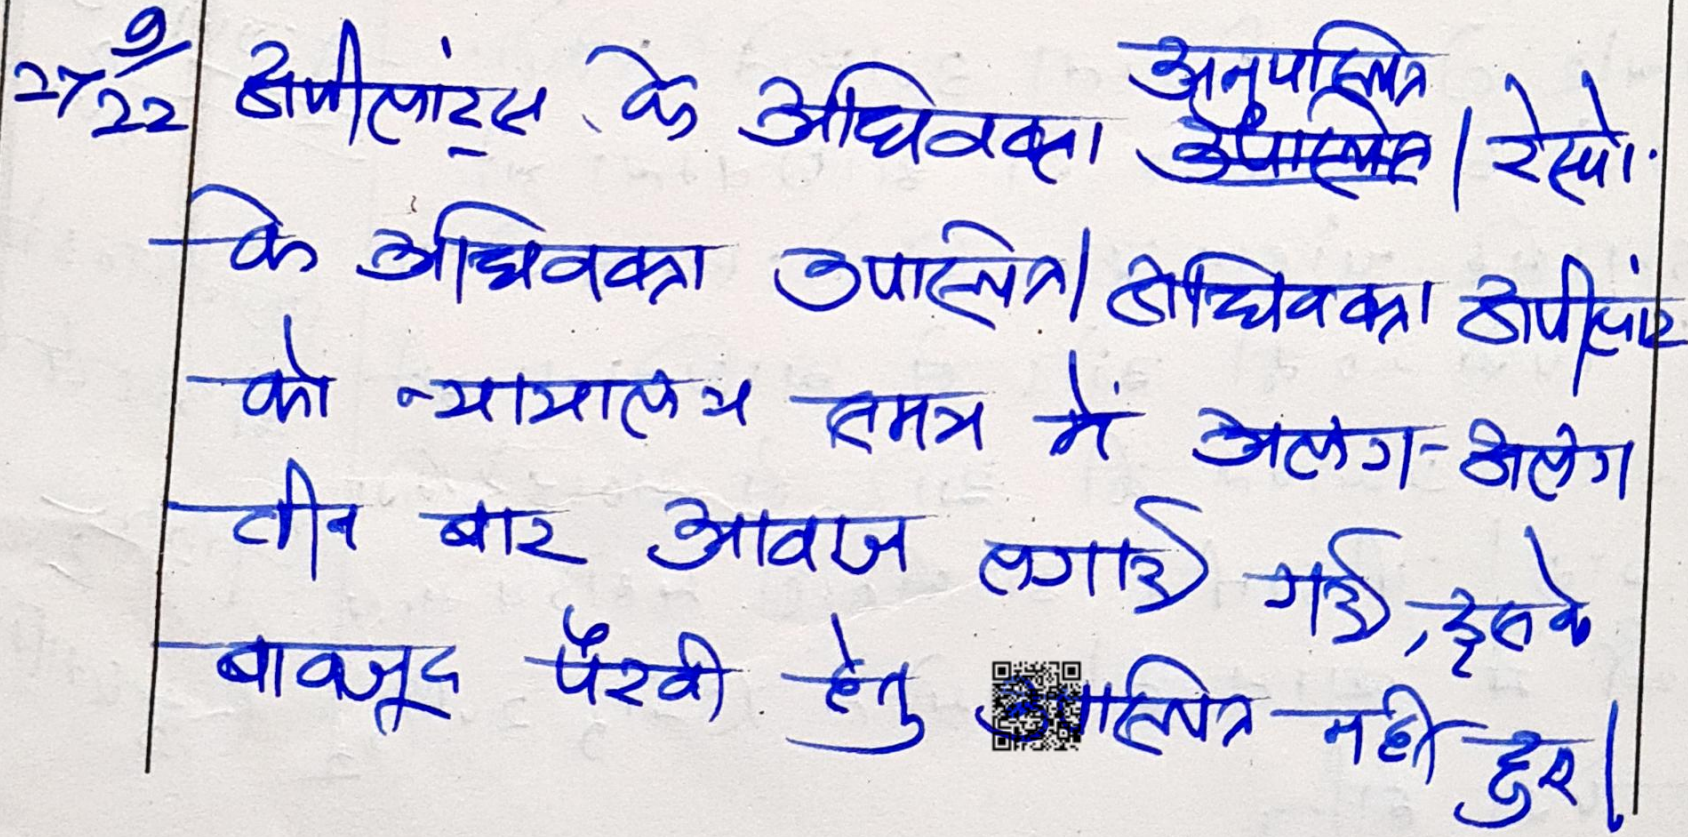 27/9/22 अपीलांट्स के अधिवक्ता अनुपस्थित। रेस्पो.
के अधिवक्ता उपस्थित। अधिवक्ता अपीलांट
को न्यायालय समय में अलग-अलग
तीन बार आवाज लगाई गई, इसके
बावजूद पैरवी हेतु उपस्थित नहीं हुए।